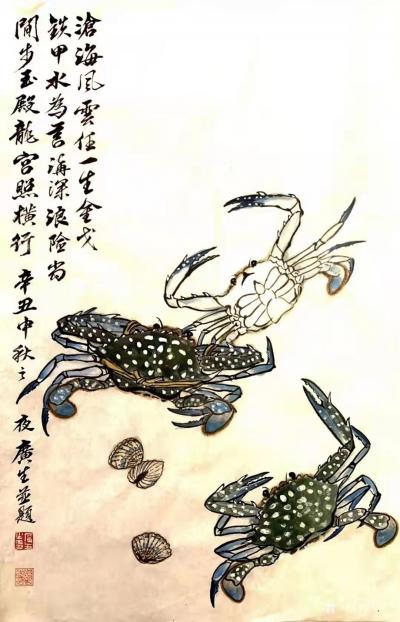 滄海風雲任一生金戈
鉄甲水為营海深浪险尚
閒步玉殿龍宮照横行 辛丑中秋之
夜廣生並題